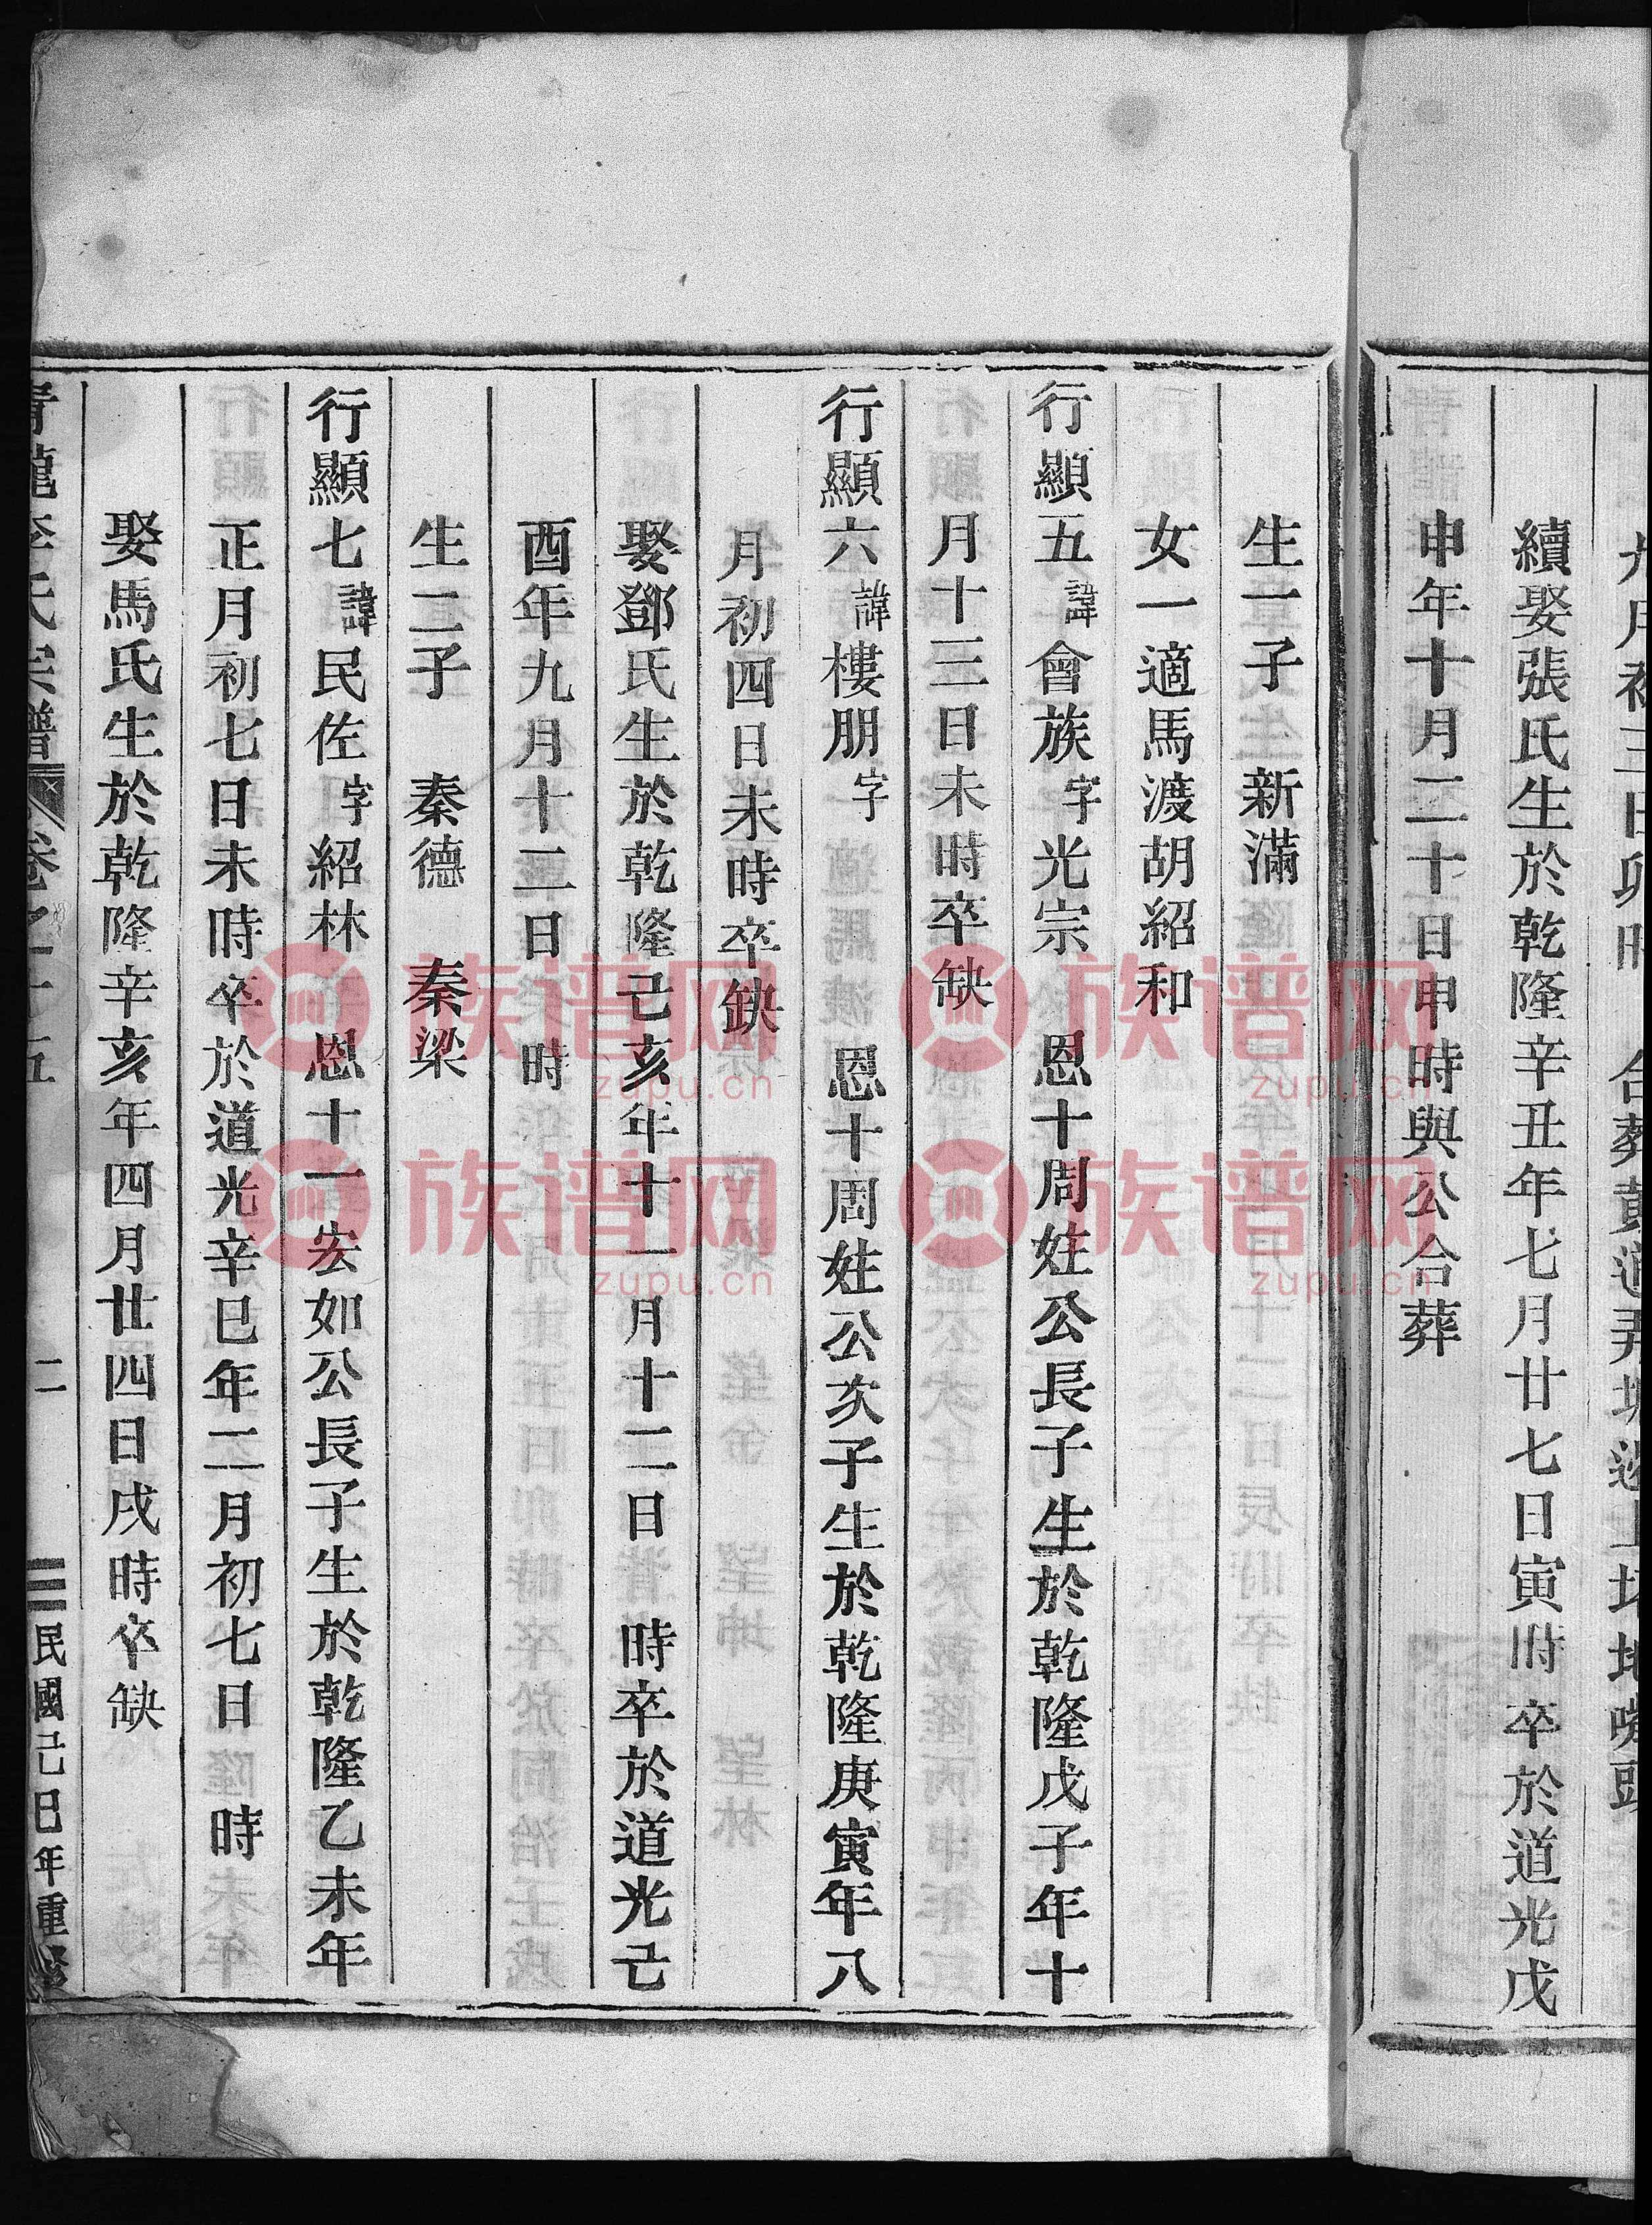 續娶張氏生於乾隆辛丑年七月廿七日寅時卒於道光戊
申年十月二十日申時與公合葬
生一子 新滿
女一適馬渡胡紹和
行顯五諱會族字光宗 恩十周姓公長子生於乾隆戊子年十
月十三日未時卒缺
行顯六諱樓朋字 恩十周姓公次子生於乾隆庚寅年八
月初四日未時卒缺
娶鄧氏生於乾隆己亥年十一月十二日 時卒於道光己
酉年九月十二日 時
生二子 秦德 秦梁
行顯七諱民佐字紹林 恩十一宏如公長子生於乾隆乙未年
正月初七日未時卒於道光辛巳年二月初七日 時
娶馬氏生於乾隆辛亥年四月廿四日戌時卒缺
氏宗譜 卷之十五 二 民國己巳年重修
族谱网
zupu.cn
族谱网
zupu.cn
族谱网
zupu.cn
族谱网
zupu.cn